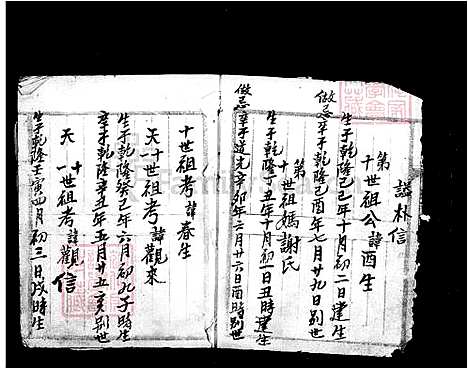 諡朴信
第十世祖公諱酉生
生于乾隆己巳年十月初二日建生
做忌
卒于乾隆己酉年七月廿九日別世
第十世祖媽謝氏
生于乾隆丁丑年十月初一日丑時建生
做忌
卒于道光辛卯年六月廿六日酉時別世
十世祖考諱春生
天十一世祖考諱觀來
生于乾隆癸巳年六月初九子時生
卒于乾隆辛丑年五月廿五亥別世
天十一世祖考諱觀信
生于乾隆壬寅四月初三日戌時生